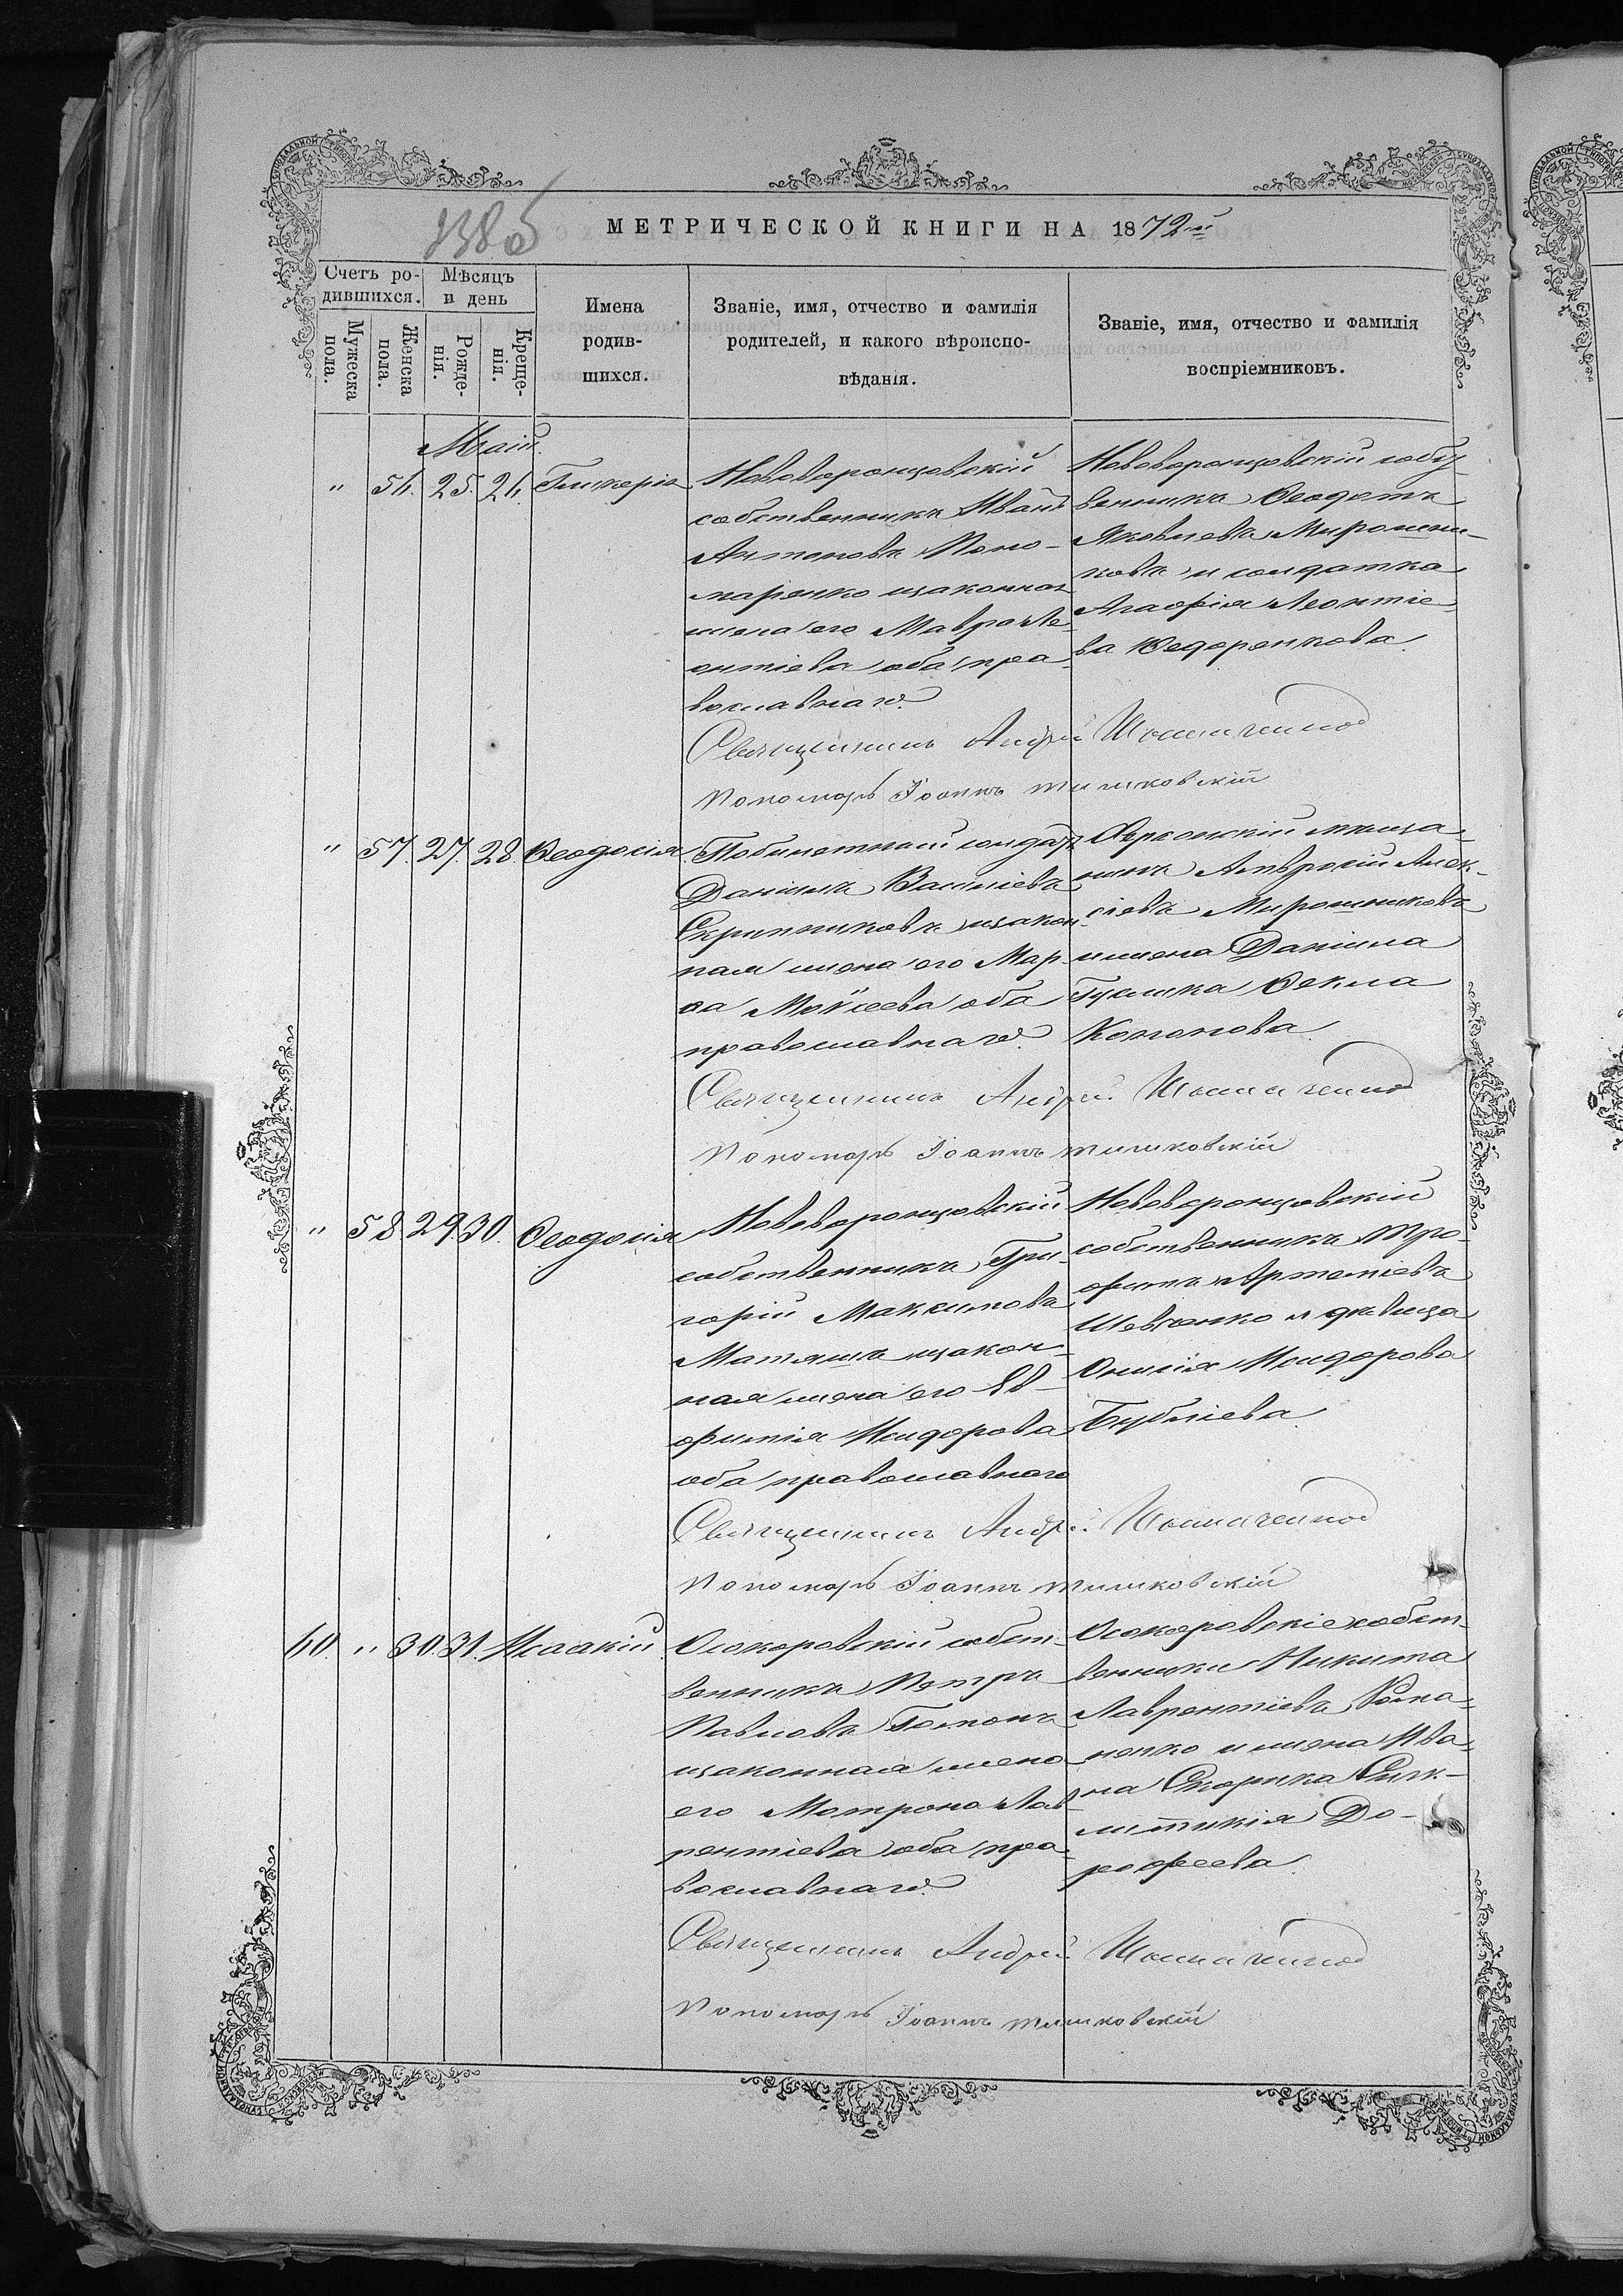 138об
МЕТРИЧЕСКОЙ КНИГИ НА 1872й
Счетъ ро-
дившихся.
Мѣсяцъ
и день
Мужеска
пола.
Женска
пола.
Рожде-
нія.
Креще-
нія.
Имена
родив-
шихся.
Званіе, имя, отчество и фамилія
родителей, и какого вѣроиспо-
вѣданія.
Званіе, имя, отчество и фамилія
воспріемниковъ.
Маій.
" 56. 25. 26. Гликерія
Нововоронцовскій
собственникъ Иванъ
Антоновъ Поно-
маренко изаконная
жена его Мавра Ле-
онтіева оба пра-
вославнаго.
Нововоронцовскій собст-
венникъ Ѳеодотъ
Яковлевъ Мирошни-
ковъ и солдатка
Агафія Леонтіе-
ва Ѳедоренкова.
Священникъ Андрей
Пономарь Іоаннъ
" 57. 27. 28. Ѳеодосія
солдатъ
Даніилъ Василіевъ
Скрипниковъ изакон-
ная жена его Мар-
ѳа Моѵсеева оба
православнаго.
Херсонскій мѣща-
нинъ Амвросій Алек-
сіевъ Мирошниковъ
ижена Даніила
Гуслика Ѳекла
Кононова.
Священникъ Андрей
Пономарь Іоаннъ
" 58. 29. 30. Ѳеодосія
Нововоронцовскій
собственникъ Гри-
горій Максимовъ
Матяшъ изакон-
ная жена его Ев-
фимія Исидорова
оба православнаго
Нововоронцовскій
собственникъ Тро-
фимъ Артеміевъ
Шевченко и дѣвица
Исидорова
Бубліева.
Священникъ Андрей
Пономарь Іоаннъ
60. " 30. 31. Исаакій
Осокоровскій собст-
венникъ Петръ
Павловъ Гомонъ
изаконная жена
его Матрона Лав-
рентіева оба пра-
вославнаго.
Осокоровскіе собст-
венники Никита
Лаврентіевъ Рома-
ненко и жена Ива-
на Скорика Синк-
литикія До-
рофеева.
Священникъ Андрей
Пономарь Іоаннъ